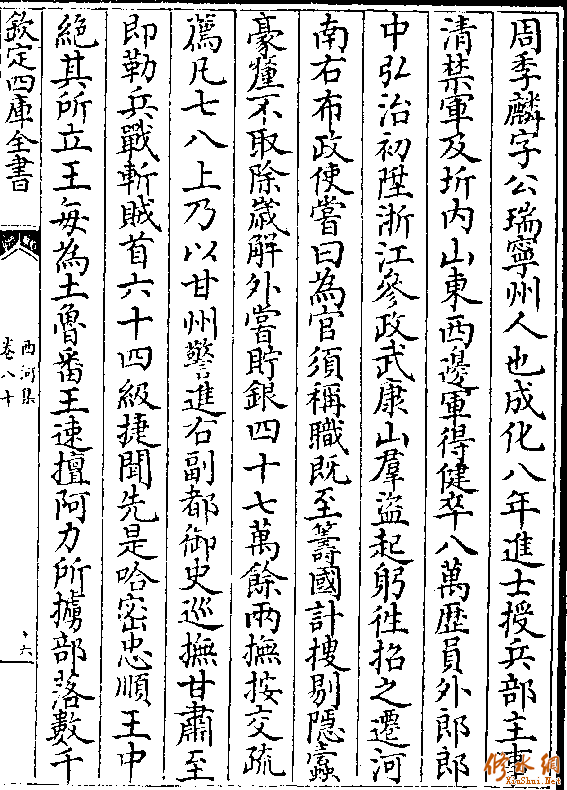 周季麟字公瑞寧州人也成化八年進士授兵部主事
清禁軍及圻内山東西邊軍得健卒八萬歴員外郎郎
中弘治初陞浙江參政武康山羣盜起躬徃招之遷河
南右布政使嘗曰為官須稱職既至籌國計搜剔隱蠧
豪釐不取除歲解外嘗貯銀四十七萬餘兩撫按交疏
薦凡七八上乃以甘州警進右副都御史巡撫甘肅至
即勒兵戰斬賊首六十四級捷聞先是哈密忠順王中
絶其所立王每為土魯番王速擅阿力所擄部落數千
欽定四庫全書
西河集
卷八十
十六
修水網
XiuShui.Net